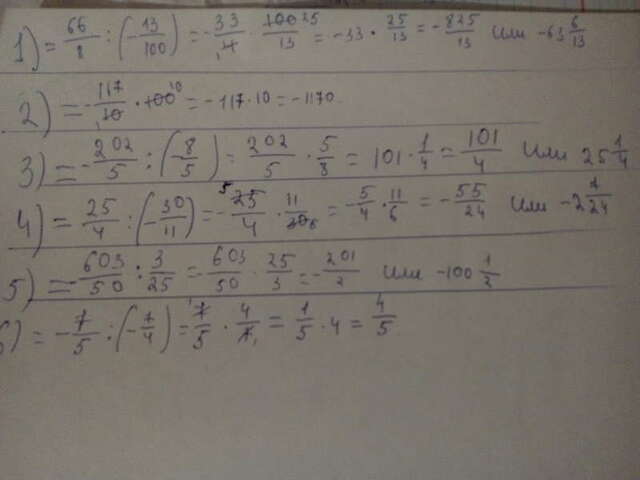 1) = 66/8 : (-13/100) = -33/4 · 100 25/13 = -33 · 25/13 = -825/13 или -63 6/13
2) = -117/10 · 100 10 = -117·10 = -1170.
3) = -202/5 : (-8/5) = 202/5 · 5/8 = 101 · 1/4 = 101/4 или 25 1/4
4) = 25/4 : (-30/11) = - 5 25/4 · 11/30 6 = -5/4 · 11/6 = -55/24 или -2 7/24
5) = -603/50 : 3/25 = -603/50 · 25/3 = -201/2 или -100 1/2
6) = -7/5 : (-7/4) = 1 7/5 · 4/7 1 = 1/5 · 4 = 4/5